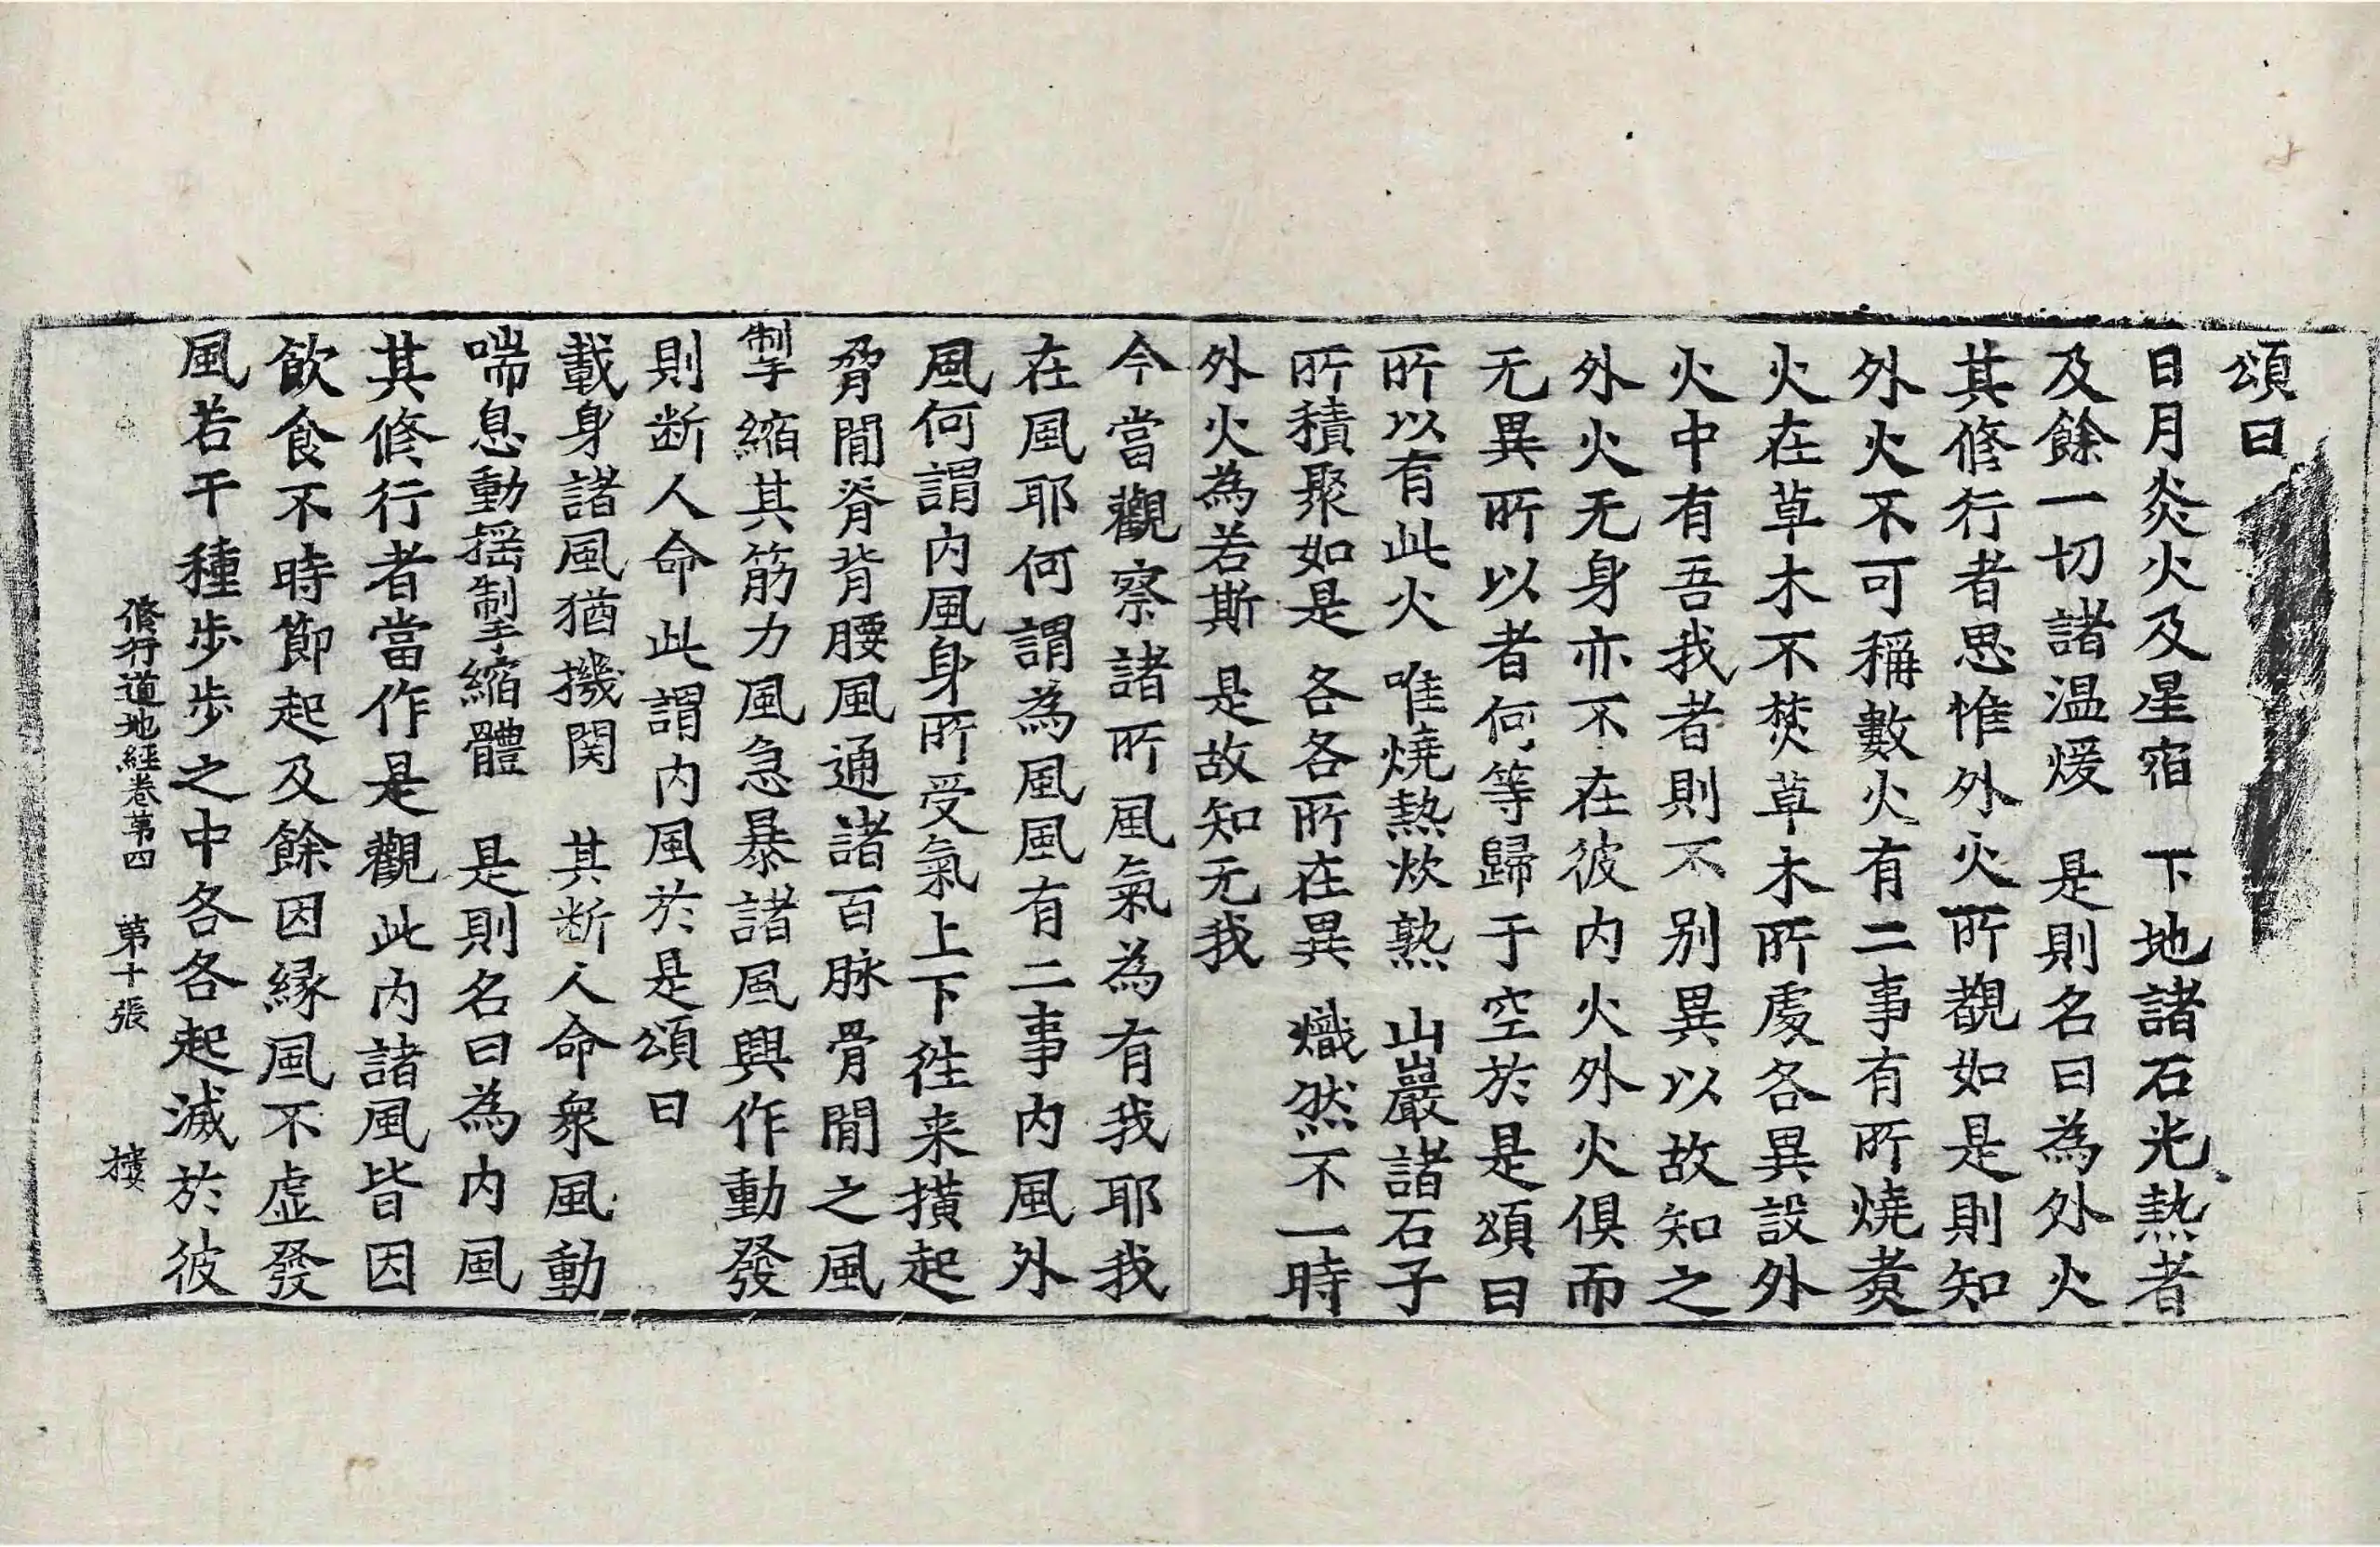 頌曰
日月炎火及星宿　下地諸石光熱者
及餘一切諸温煖　是則名曰為外火
其修行者思惟外火所觀如是則知
外火不可稱數火有二事有所燒煑
火在草木不焚草木所處各異設外
火中有吾我者則不別異以故知之
外火无身亦不在彼内火外火俱而
无異所以者何等歸于空於是頌曰
所以有此火　唯燒熱炊熟　山巖諸石子
所積聚如是　各各所在異　熾然不一時
外火為若斯　是故知无我
今當觀察諸所風氣為有我耶我
在風耶何謂為風風有二事内風外
風何謂内風身所受氣上下往来撗起
脅間脊背腰風通諸百脉骨間之風
掣縮其筋力風急暴諸風興作動發
則断人命此謂内風於是頌曰
載身諸風猶攙関　其断人命衆風動
喘息動揺掣縮體　是則名曰為内風
其修行者當作是觀此内諸風皆因
飲食不時節起及餘因縁風不虚發
風若干種步步之中各各起滅於彼
修行道地經卷第四　第十張　摟